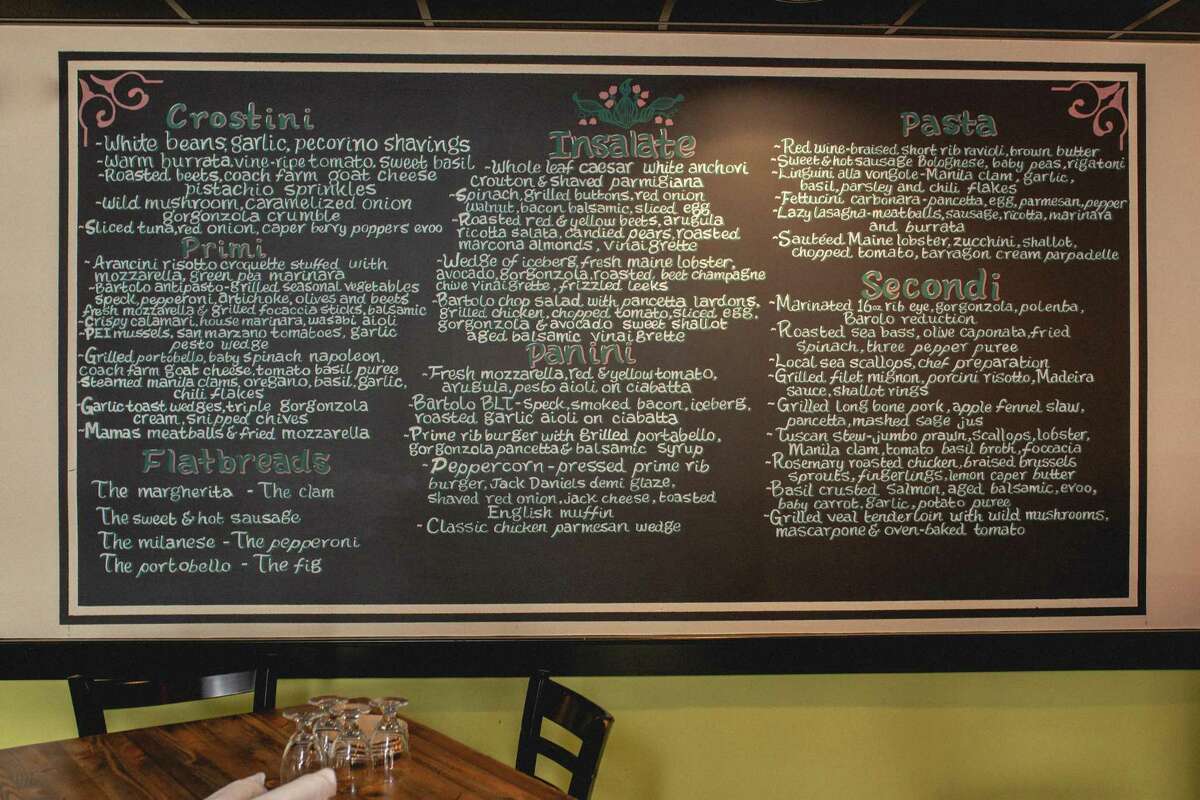 Crostini
~White beans, garlic, pecorino shavings
~Warm burrata, vine-ripe tomato, sweet basil
~Roasted beets, coach farm goat cheese
pistachio sprinkles
~Wild mushroom, caramelized onion
gorgonzola crumble
~Sliced tuna, red onion, caper berry poppers evoo
Primi
~Arancini risotto croquette stuffed with
mozzarella, green pea marinara
~Bartolo antipasto-grilled seasonal vegetables
speck, pepperoni, artichoke, olives and beets
fresh mozzarella & grilled focaccia sticks, balsamic
~Crispy calamari, house marinara, wasabi, aioli
~PEI mussels, san marzano tomatoes, garlic
pesto wedge
~Grilled portobello, baby spinach napoleon,
coach farm goat cheese, tomato basil puree
~Steamed manila clams, oregano, basil, garlic,
chili flakes
~Garlic toast wedges, triple gorgonzola
cream, snipped chives
~Mamas meatballs & fried mozzarella
Flatbreads
The margherita - The clam
The sweet & hot sausage
The milanese - The pepperoni
The portobello - The fig
Insalate
~Whole leaf caesar white anchovi
crouton & shaved parmigiana
~Spinach, grilled buttons, red onion
walnut, bacon balsamic, sliced egg
~Roasted red & yellow beets, arugula
ricotta salata, candied pears, roasted
marcona almonds, vinaigrette
~Wedge of iceberg, fresh maine lobster,
avocado, gorgonzola, roasted, beet champagne
chive vinaigrette, frizzled leeks
~Bartolo chop salad with pancetta lardons,
grilled chicken, chopped tomato, sliced egg,
gorgonzola & avocado sweet shallot
aged balsamic vinaigrette
Panini
~Fresh mozzarella, red & yellow tomato,
arugula, pesto aioli on ciabatta
~Bartolo BLT-Speck, smoked bacon, iceberg,
roasted garlic aioli on ciabatta
~Prime rib burger with Grilled portobello,
gorgonzola pancetta & balsamic syrup
~Peppercorn-pressed prime rib
burger, Jack Daniels demi glaze,
shaved red onion, jack cheese, toasted
English muffin
~Classic chicken parmesan wedge
Pasta
~Red wine-braised short rib ravioli, brown butter
~Sweet & hot sausage Bolognese, baby peas, rigatoni
~Linguini alla vongole-Manila clam, garlic,
basil, parsley and chili flakes
~Fettucini carbonara-pancetta, egg, parmesan, pepper
~Lazy lasagna-meatballs, sausage, ricotta, marinara
and burrata
~Sautéed Maine lobster, zucchini, shallot,
chopped tomato, tarragon cream parpadelle
Secondi
~Marinated 16oz rib eye, gorgonzola, polenta,
Barolo reduction
~Roasted sea bass, olive caponata, fried
spinach, three pepper puree
~Local sea scallops, chef preparation
~Grilled filet mignon, porcini risotto, Madeira
sauce, shallot rings
~Grilled long bone pork, apple fennel slaw,
pancetta, mashed sage jus
~Tuscan stew-jumbo prawn, scallops, lobster,
Manila clam, tomato basil broth, foccacia
~Rosemary roasted chicken, braised brussels
sprouts, fingerlings, lemon caper butter
~Basil crusted Salmon, aged balsamic, evoo,
baby carrot, garlic, potato puree
~Grilled veal tenderloin with wild mushrooms,
mascarpone & oven-baked tomato